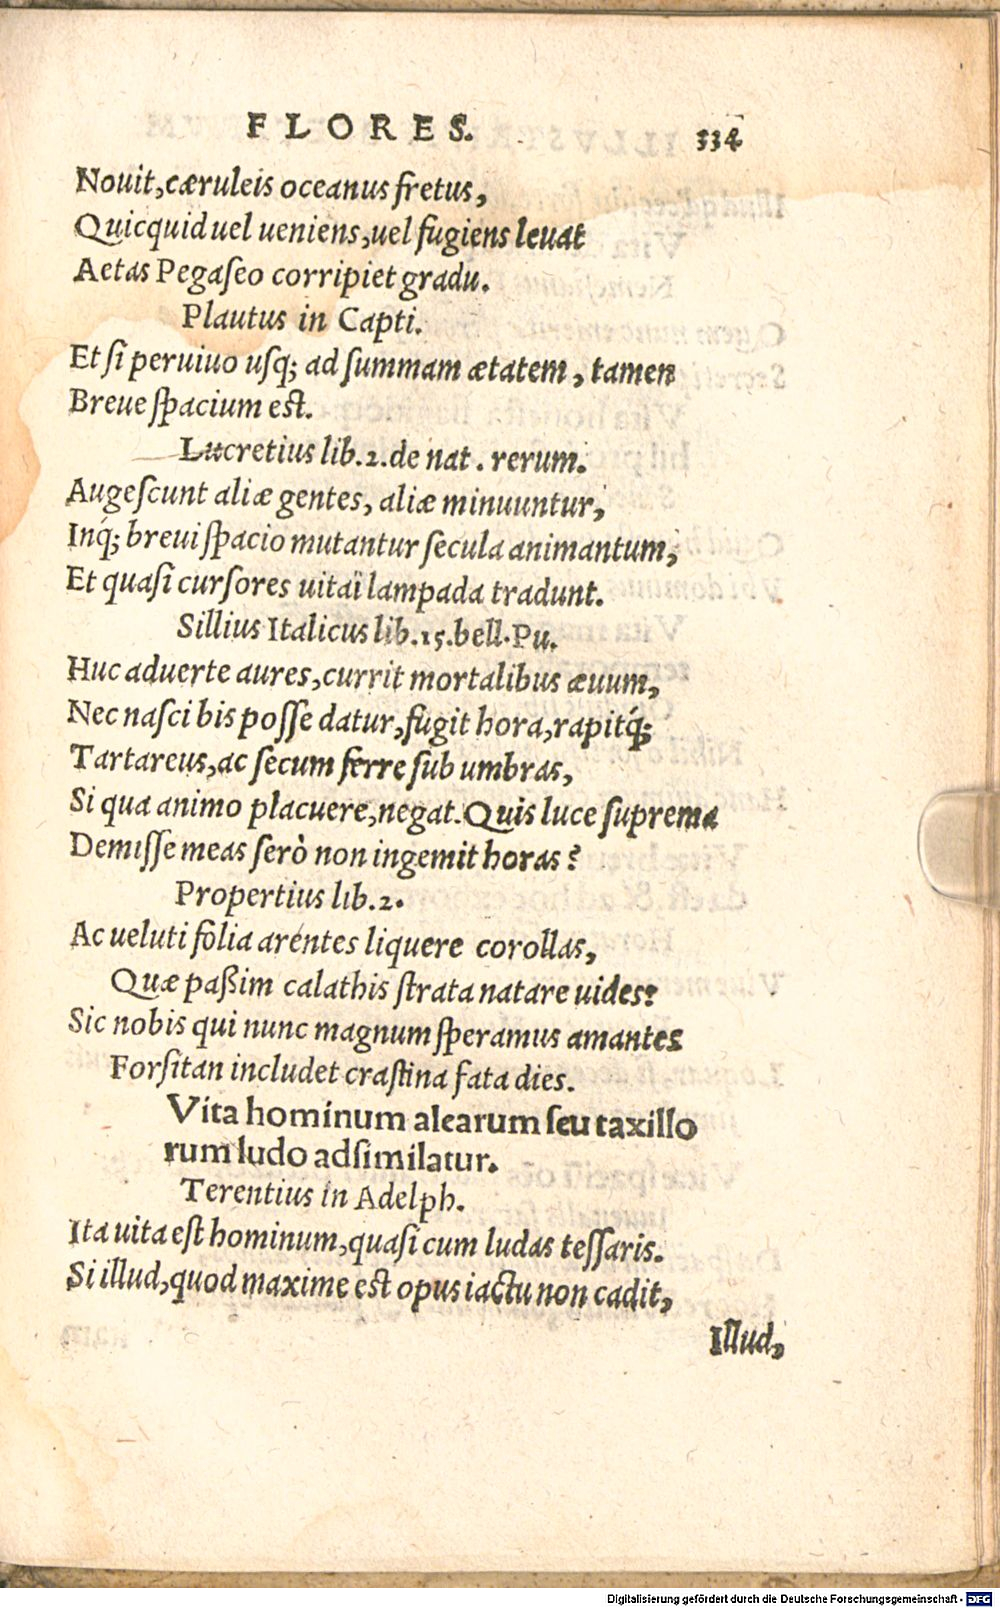 FLORES. 334
Nouit, cæruleis oceanus fretus,
Quicquid uel ueniens, uel fugiens leuat
Aetas Pegaseo corripiet gradu.
Plautus in Capti.
Et si peruiuo usq; ad summam ætatem, tamen
Breue spacium est.
Lucretius lib. 2. de nat. rerum.
Augescunt aliæ gentes, aliæ minuuntur,
Inq́; breui spacio mutantur secula animantum,
Et quasi cursores uitaï lampada tradunt.
Sillius Italicus lib. 15. bell. Pu.
Huc aduerte aures, currit mortalibus æuum,
Nec nasci bis posse datur, fugit hora, rapitq́;
Tartareus, ac secum ferre sub umbras,
Si qua animo placuere, negat. Quis luce suprema
Demisse meas serò non ingemit horas?
Propertius lib. 2.
Ac ueluti folia arentes liquere corollas,
Quæ paßim calathis strata natare uides:
Sic nobis qui nunc magnum speramus amantes
Forsitan includet crastina fata dies.
Vita hominum alearum seu taxillo
rum ludo adsimilatur.
Terentius in Adelph.
Ita uita est hominum, quasi cum ludas tessaris.
Si illud, quod maxime est opus iactu non cadit,
Illud,
Digitalisierung gefördert durch die Deutsche Forschungsgemeinschaft - DFG